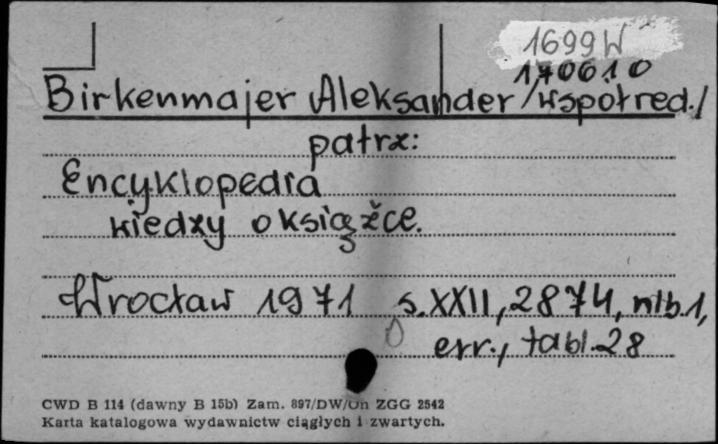 1699W
170610
Birkenmajer Aleksander /współred./
patrz:
Encyklopedia
wiedzy o książce.
Wrocław 1971 s. XXII, 2874, nlb.1,
err., tabl. 28
CWD B 114 (dawny B 15b) Zam. 897/DW/Un ZGG 2542
Karta katalogowa wydawnictw ciągłych i zwartych.